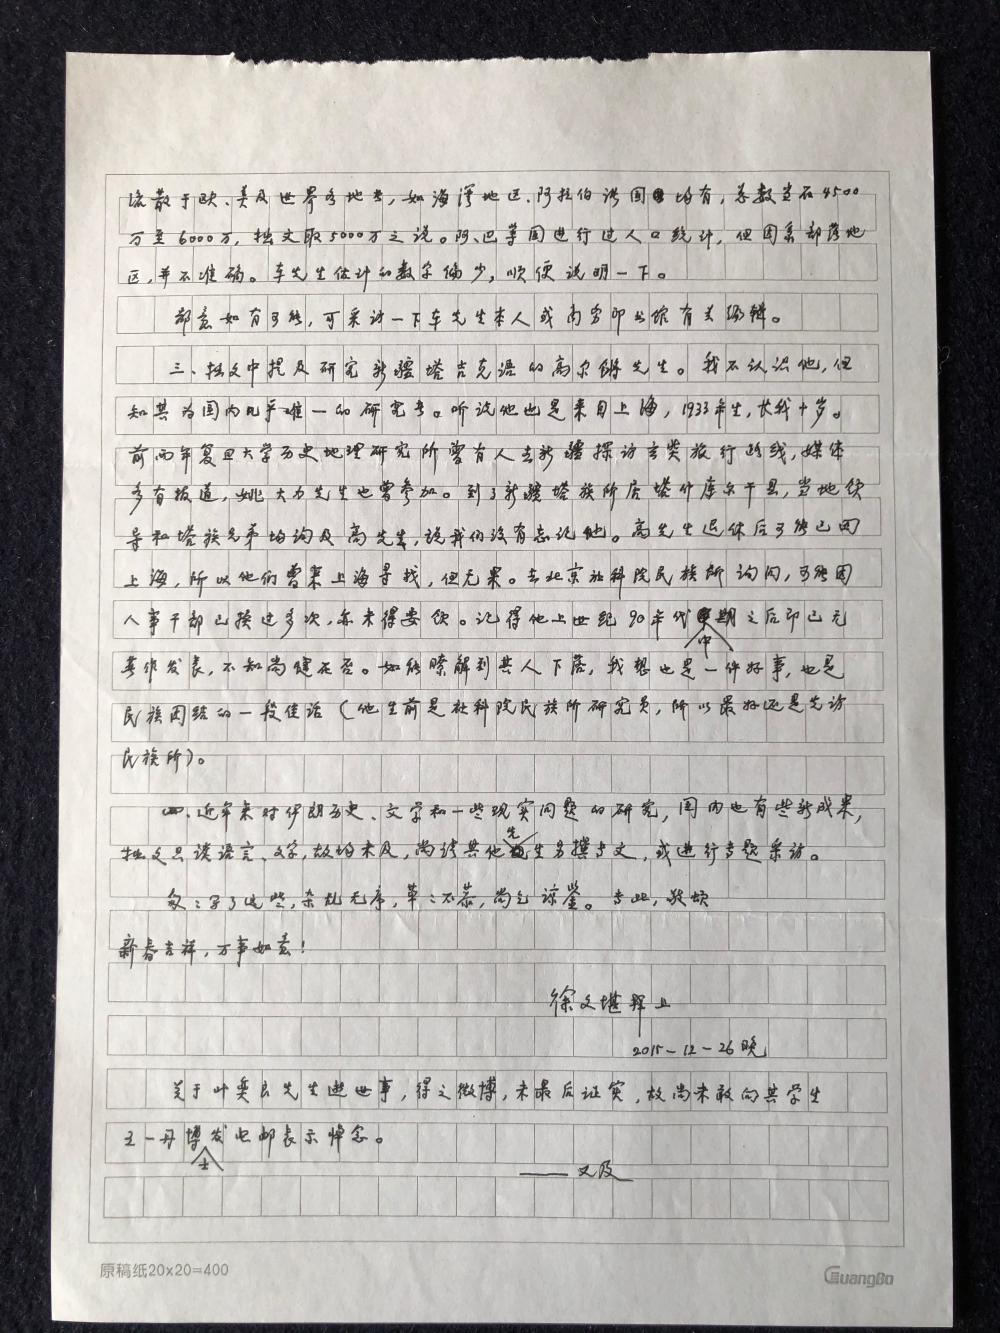 流散于欧、美及世界各地者，如海湾地区、阿拉伯诸国均有，总数当在4500
万至6000万，拙文取5000万之说。阿、巴等国进行过人口统计，但因系部落地
区，并不准确。车先生估计的数字偏少，顺便说明一下。
鄙意如有可能，可采访一下车先生本人或商务印书馆有关编辑。
三、拙文中提及研究新疆塔吉克语的高尔锵先生。我不认识他，但
知其为国内几乎唯一的研究者。听说他也是来自上海，1933年生，长我十岁。
前两年复旦大学历史地理研究所曾有人去新疆探访玄奘旅行路线，媒体
多有报道，姚大力先生也曾参加。到了新疆塔族所居塔什库尔干县，当地领
导和塔族兄弟均询及高先生，说我们没有忘记他。高先生退休后可能已回
上海，所以他们曾来上海寻找，但无果。去北京社科院民族所询问，可能因
人事干部已换过多次，亦未得要领。记得他上世纪90年代中期之后即已无
著作发表，不知尚健在否。如能瞭解到其人下落，我想也是一件好事，也是
民族团结的一段佳话（他生前是社科院民族所研究员，所以最好还是先访
民族所）。
四、近年来对伊朗历史、文学和一些现实问题的研究，国内也有些新成果，
拙文只谈语言、文字，故均未及，尚请其他先生另撰专文，或进行专题采访。
匆匆写了这些，杂乱无序，草草不恭，尚乞谅鉴。专此，敬颂
新春吉祥，万事如意！
徐文堪拜上
2015-12-26晚
关于叶奕良先生逝世事，得之微博，未最后证实，故尚未敢向其学生
王一丹博士发电邮表示悼念。
——又及
原稿纸20×20=400
GuangBo